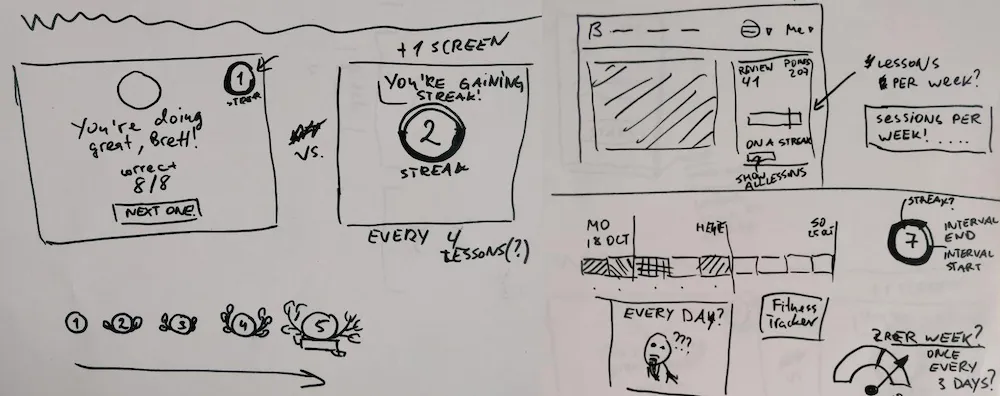 1
STREAK
You're doing
great, Brett!
correct
8/8
NEXT ONE!
VS.
+1 SCREEN
YOU'RE GAINING
STREAK!
2
STREAK
EVERY 4
LESSONS(?)
1 2 3 4 5
B
Me
REVIEW
41
POINTS
207
ON A STREAK
SHOW
ALL LESSONS
LESSONS
PER WEEK?
SESSIONS PER
WEEK! ....
MO
18 OCT
HEUTE
SO
STREAK?
7
INTERVAL
END
INTERVAL
START
EVERY DAY?
???
Fitness
Tracker
2 PER WEEK?
ONCE
EVERY
3 DAYS?